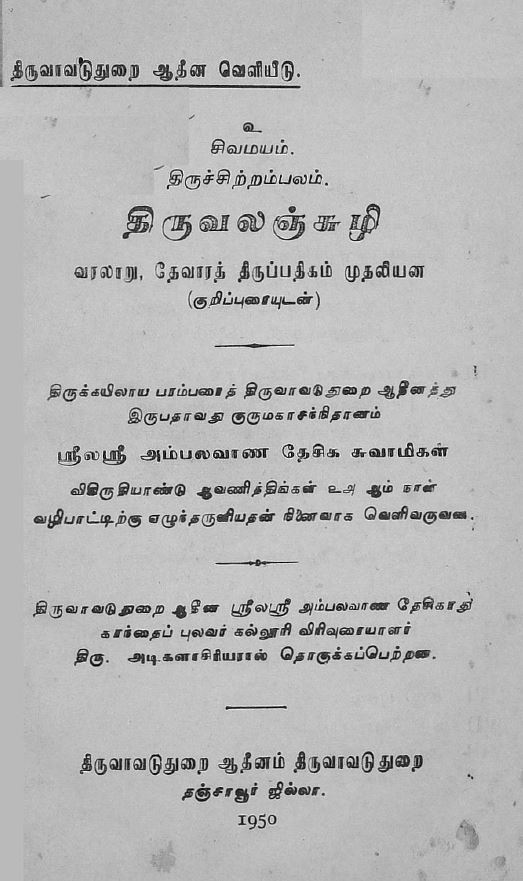 திருவாவடுதுறை ஆதீன வெளியீடு.
உ
சிவமயம்.
திருச்சிற்றம்பலம்.
திருவலஞ்சுழி
வரலாறு, தேவாரத் திருப்பதிகம் முதலியன
(குறிப்புரையுடன்)
திருக்கயிலாய பரம்பரைத் திருவாவடுதுறை ஆதீனத்து
இருபதாவது குருமகாசந்நிதானம்
ஸ்ரீலஸ்ரீ அம்பலவாண தேசிக சுவாமிகள்
விகிருதியாண்டு ஆவணித்திங்கள் உஅ ஆம் நாள்
வழிபாட்டிற்கு எழுந்தருளியதன் நினைவாக வெளிவருவன.
திருவாவடுதுறை ஆதீன ஸ்ரீலஸ்ரீ அம்பலவாண தேசிகர்
புலவர் கல்லூரி விரிவுரையாளர்
திரு. அடிகளாசிரியரால் தொகுக்கப்பெற்றன.
திருவாவடுதுறை ஆதீனம் திருவாவடுதுறை
தஞ்சாவூர் ஜில்லா.
1950